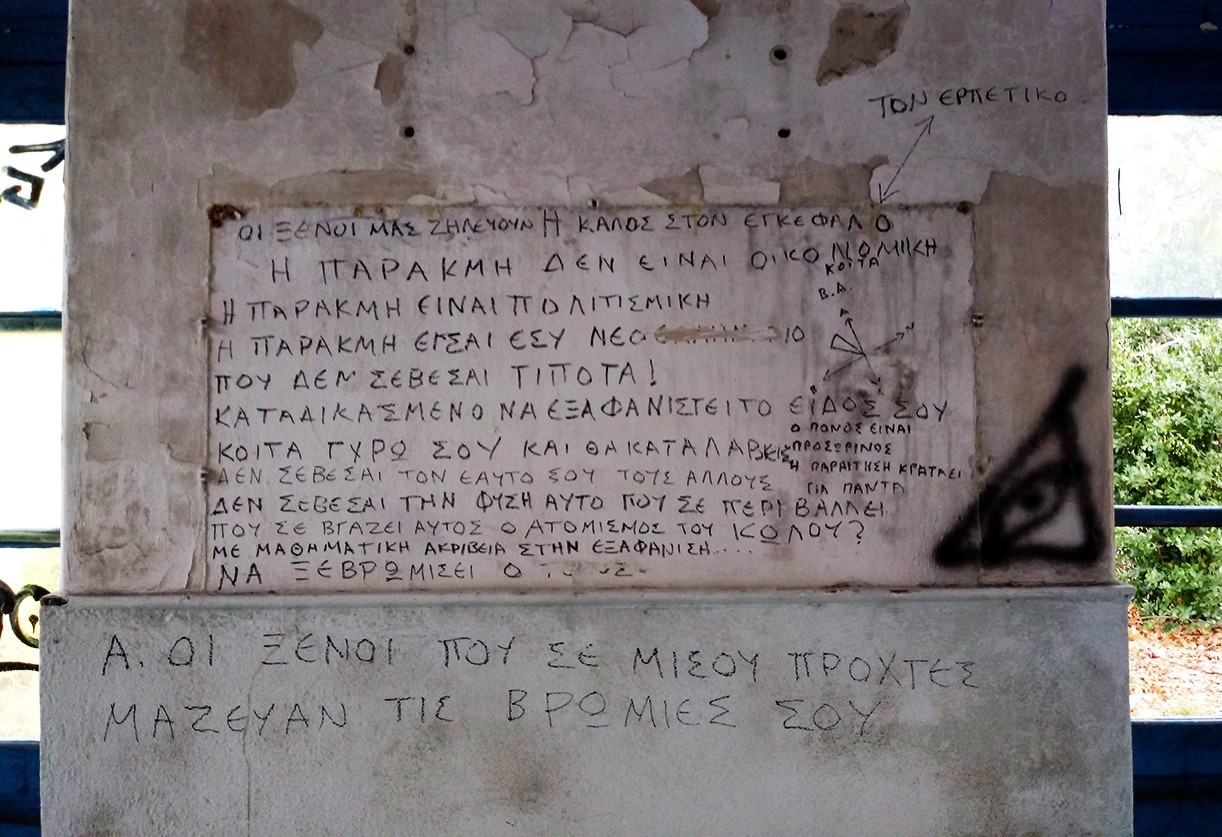 ΤΟΝ ΕΡΠΕΤΙΚΟ
ΟΙ ΞΕΝΟΙ ΜΑΣ ΖΗΛΕΥΟΥΝ Η ΚΑΛΟΣ ΣΤΟΝ ΕΓΚΕΦΑΛΟ
Η ΠΑΡΑΚΜΗ ΔΕΝ ΕΙΝΑΙ ΟΙΚΟΝΟΜΙΚΗ
ΚΟΙΤΑ
Β.Α.
Η ΠΑΡΑΚΜΗ ΕΙΝΑΙ ΠΟΛΙΤΙΣΜΙΚΗ
Η ΠΑΡΑΚΜΗ ΕΙΣΑΙ ΕΣΥ ΝΕΟ
ΠΟΥ ΔΕΝ ΣΕΒΕΣΑΙ ΤΙΠΟΤΑ!
ΚΑΤΑΔΙΚΑΣΜΕΝΟ ΝΑ ΕΞΑΦΑΝΙΣΤΕΙ ΤΟ ΕΙΔΟΣ ΣΟΥ
ΚΟΙΤΑ ΓΥΡΩ ΣΟΥ ΚΑΙ ΘΑ ΚΑΤΑΛΑΒΕΙΣ
Ο ΠΟΝΟΣ ΕΙΝΑΙ
ΠΡΟΣΩΡΙΝΟΣ
Η ΠΑΡΑΙΤΗΣΗ ΚΡΑΤΑΕΙ
ΓΙΑ ΠΑΝΤΑ
ΔΕΝ ΣΕΒΕΣΑΙ ΤΟΝ ΕΑΥΤΟ ΣΟΥ ΤΟΥΣ ΑΛΛΟΥΣ
ΔΕΝ ΣΕΒΕΣΑΙ ΤΗΝ ΦΥΣΗ ΑΥΤΟ ΠΟΥ ΣΕ ΠΕΡΙΒΑΛΛΕΙ
ΠΟΥ ΣΕ ΒΓΑΖΕΙ ΑΥΤΟΣ Ο ΑΤΟΜΙΣΜΟΣ ΤΟΥ ΚΩΛΟΥ?
ΜΕ ΜΑΘΗΜΑΤΙΚΗ ΑΚΡΙΒΕΙΑ ΣΤΗΝ ΕΞΑΦΑΝΙΣΗ....
ΝΑ ΞΕΒΡΩΜΙΣΕΙ Ο
Α. ΟΙ ΞΕΝΟΙ ΠΟΥ ΣΕ ΜΙΣΟΥ ΠΡΟΧΤΕΣ
ΜΑΖΕΥΑΝ ΤΙΣ ΒΡΩΜΙΕΣ ΣΟΥ